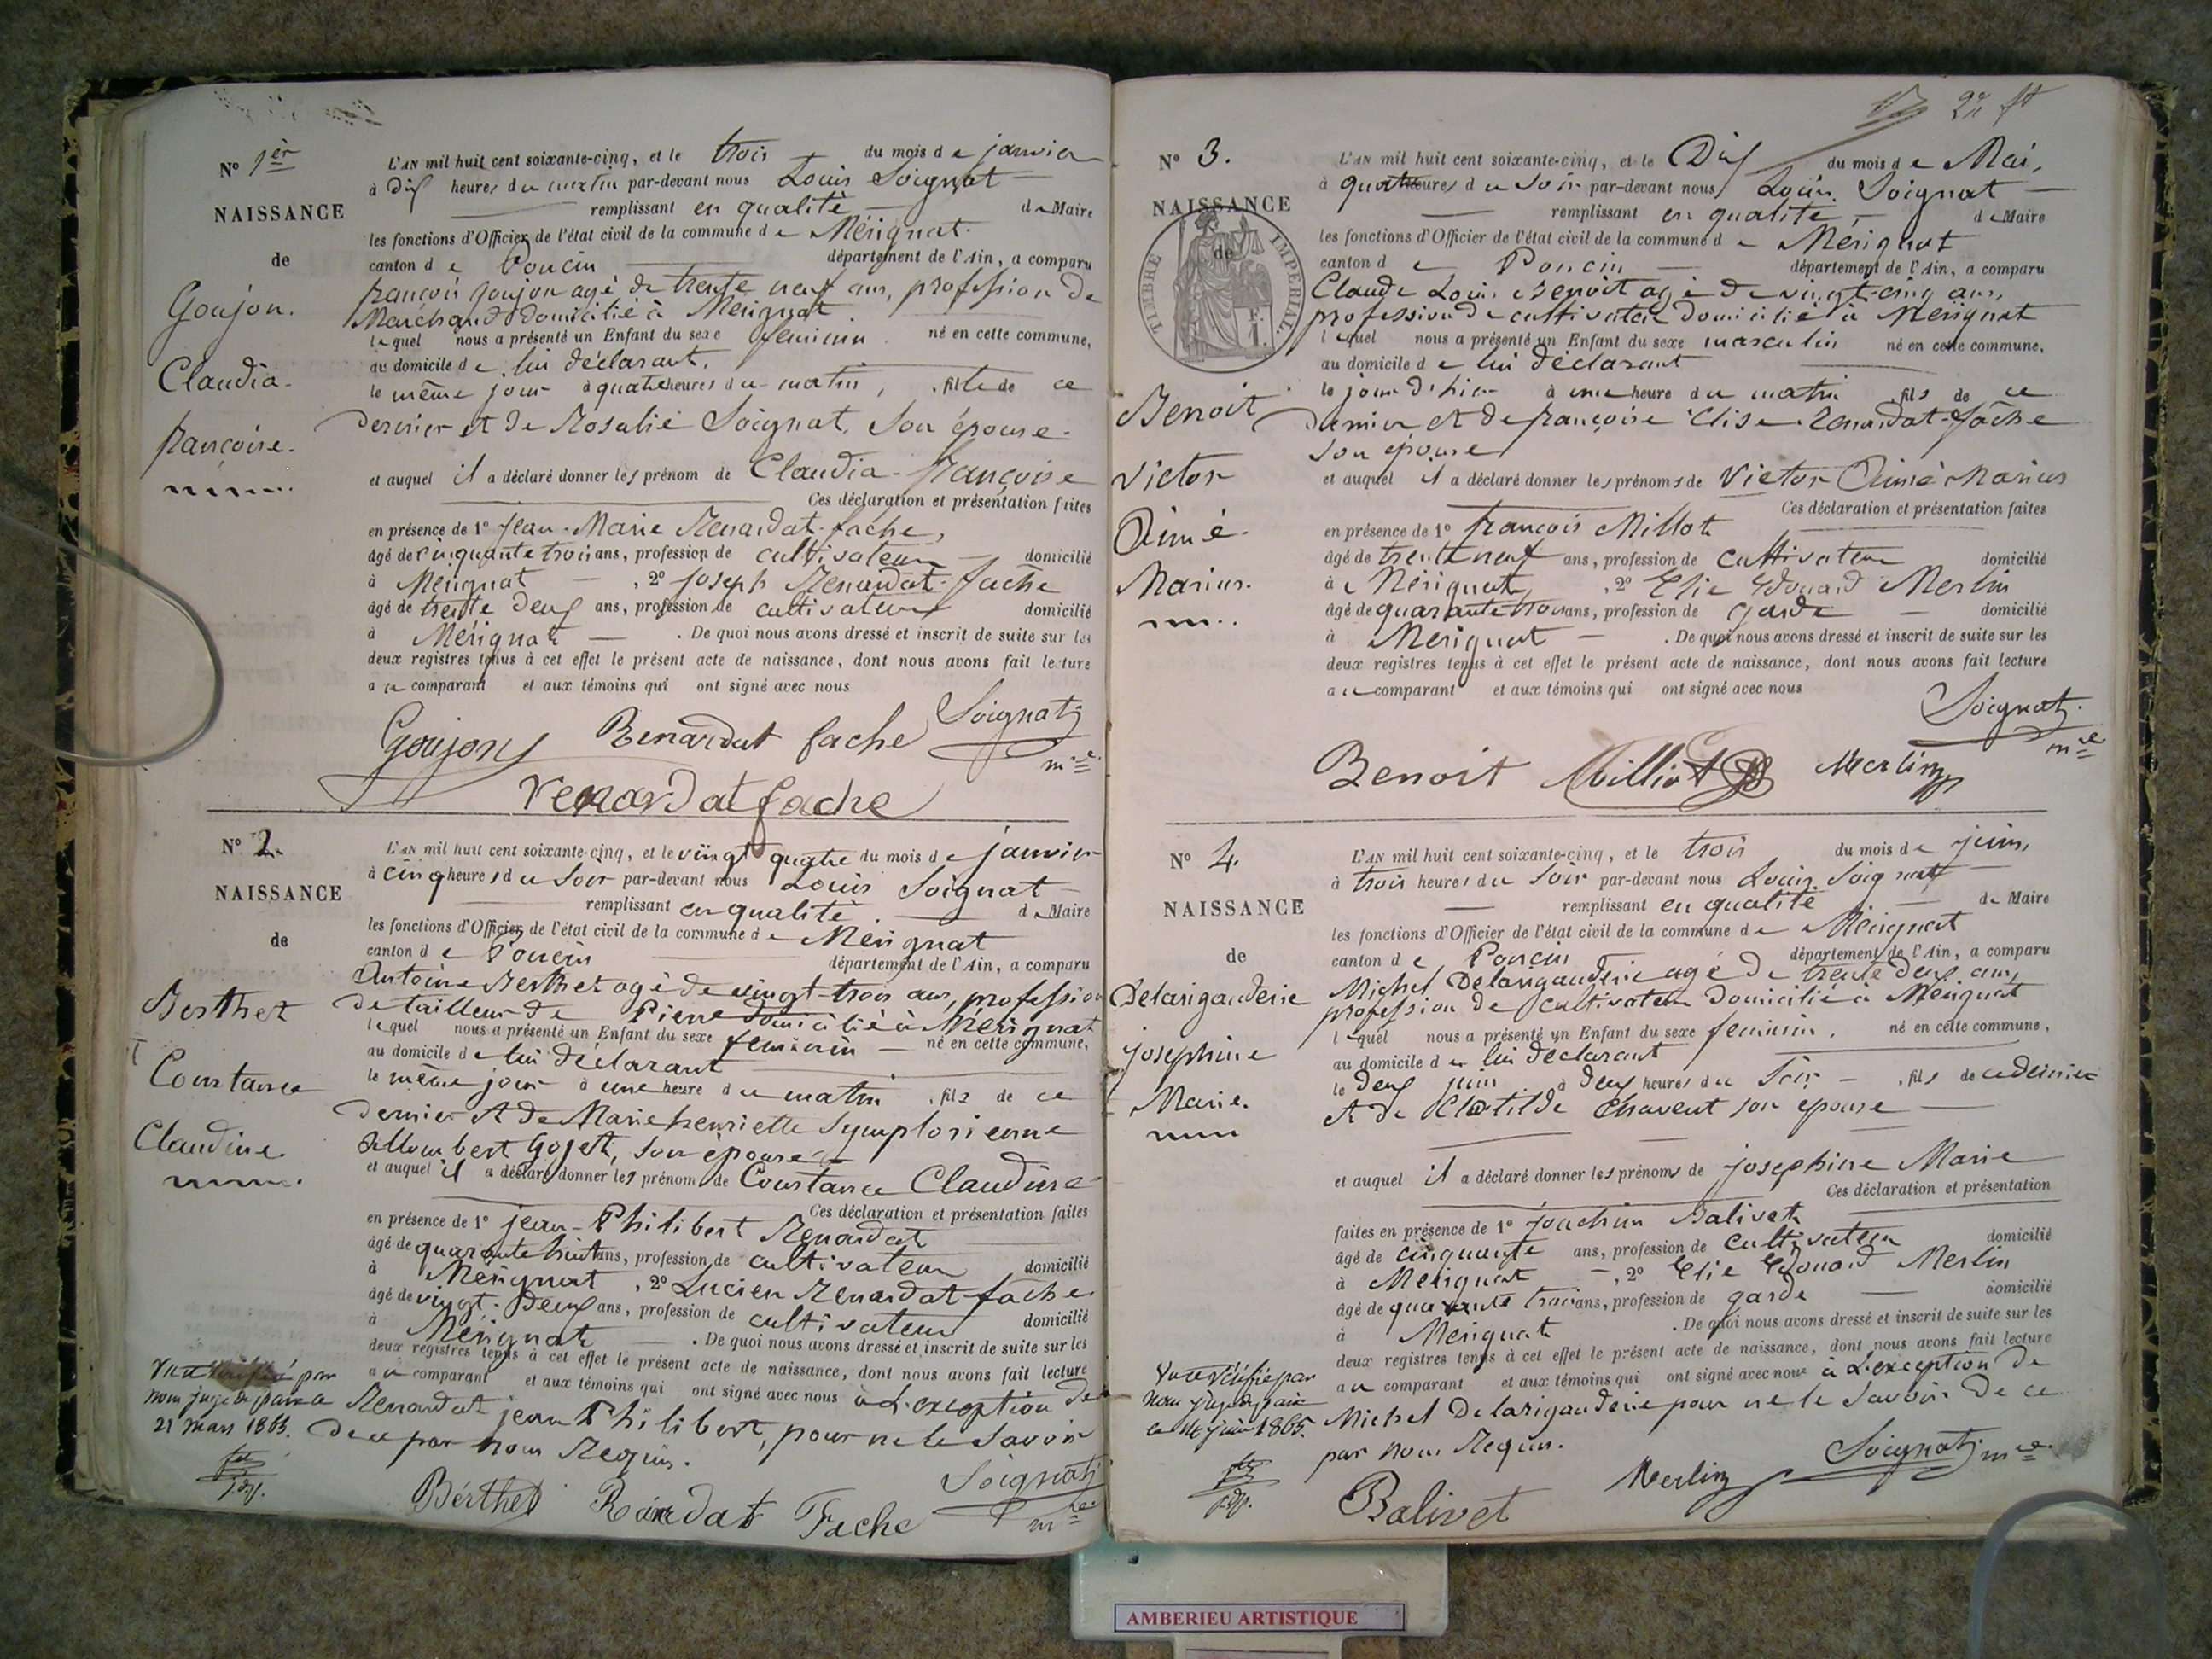 N° 1er
NAISSANCE
de
Goujon.
Claudia-
françoise.
L'AN mil huit cent soixante-cinq, et le trois du mois de janvier
à Dix heures du matin par-devant nous Louis Soignat
remplissant en qualité de Maire
les fonctions d'Officier de l'état civil de la commune de Mérignat.
canton de Poncin département de l'Ain, a comparu
françois Goujon agé de trente neuf ans, profession de
Marchand domicilié à Mérignat.
lequel nous a présenté un Enfant du sexe feminin né en cette commune,
au domicile de lui déclarant,
le même jour à quatre heures du matin, fille de ce
dernier et de Rosalie Soignat, Son épouse-
et auquel il a déclaré donner les prénom de Claudia-françoise
Ces déclaration et présentation faites
en présence de 1° Jean-Marie Renardat-fache,
âgé de cinquante trois ans, profession de cultivateur domicilié
à Mérignat, 2° Joseph Renardat-fache
âgé de trente deux ans, profession de cultivateur domicilié
à Mérignat. De quoi nous avons dressé et inscrit de suite sur les
deux registres tenus à cet effet le présent acte de naissance, dont nous avons fait lecture
au comparant et aux témoins qui ont signé avec nous
Goujon Renardat fache Soignat
mre
renardat fache
N° 2.
NAISSANCE
de
Berthet
Constance
Claudine
L'AN mil huit cent soixante-cinq, et le vingt quatre du mois de janvier
à cinq heures du Soir par-devant nous Louis Soignat
remplissant en qualité de Maire
les fonctions d'Officier de l'état civil de la commune de Mérignat
canton de Poncin département de l'Ain, a comparu
Antoine Berthet agé de vingt-trois ans, profession
de tailleur de Pierre domicilié à Mérignat
lequel nous a présenté un Enfant du sexe feminin né en cette commune,
au domicile de lui déclarant
le même jour à une heure du matin, fils de ce
dernier et de Marie henriette Symplorienne
Allombert Gojet, son épouse
et auquel il a déclaré donner les prénom de Constance Claudine
Ces déclaration et présentation faites
en présence de 1° jean-Philibert Renardat
âgé de quarante huit ans, profession de cultivateur domicilié
à Mérignat, 2° Lucien Renardat-fache
âgé de vingt-Deux ans, profession de cultivateur domicilié
à Mérignat. De quoi nous avons dressé et inscrit de suite sur les
deux registres tenus à cet effet le présent acte de naissance, dont nous avons fait lecture
au comparant et aux témoins qui ont signé avec nous à L'exception de
Renardat jean Philibert, pour ne le Savoir
de ce par nous Requis.
Vu et vérifié par
nous juge de paix le
21 mars 1865.
Bérthet Renardat Fache Soignat
mre
N° 3.
NAISSANCE
de
TIMBRE IMPERIAL
Benoit
Victor
Aimé-
Marius.
L'AN mil huit cent soixante-cinq, et le Dix du mois de Mai,
à quatre heures du Soir par-devant nous Louis Soignat
remplissant en qualité, de Maire
les fonctions d'Officier de l'état civil de la commune de Mérignat
canton de Poncin département de l'Ain, a comparu
Claude Louis Benoit agé de vingt-cinq ans,
profession de cultivateur domicilié à Mérignat
lequel nous a présenté un Enfant du sexe masculin né en cette commune,
au domicile de lui déclarant
le jour d'hier à une heure du matin fils de ce
dernier et de françoise Elise Renardat-fache
son épouse
et auquel il a déclaré donner les prénoms de Victor Aimé Marius
Ces déclaration et présentation faites
en présence de 1° françois Milliot
âgé de trente neuf ans, profession de cultivateur domicilié
à Mérignat, 2° Elie Edouard Merlin
âgé de quarante trois ans, profession de garde domicilié
à Mérignat. De quoi nous avons dressé et inscrit de suite sur les
deux registres tenus à cet effet le présent acte de naissance, dont nous avons fait lecture
au comparant et aux témoins qui ont signé avec nous
Soignat
mre
Benoit Milliot Merlin
N° 4.
NAISSANCE
de
Delarigauderie
josephine
Marie.
L'AN mil huit cent soixante-cinq, et le trois du mois de juin,
à trois heures du Soir par-devant nous Louis Soignat
remplissant en qualité de Maire
les fonctions d'Officier de l'état civil de la commune de Mérignat
canton de Poncin département de l'Ain, a comparu
Michel Delarigauderie agé de trente deux ans,
profession de cultivateur domicilié à Mérignat
lequel nous a présenté un Enfant du sexe feminin, né en cette commune,
au domicile de lui déclarant
le deux juin à deux heures du Soir, fils de ce dernier
et de Clotilde Chavent son épouse
et auquel il a déclaré donner les prénoms de josephine Marie
Ces déclaration et présentation
faites en présence de 1° joachim Balivet
âgé de cinquante ans, profession de cultivateur domicilié
à Mérignat, 2° Elie Edouard Merlin
âgé de quarante trois ans, profession de garde domicilié
à Mérignat. De quoi nous avons dressé et inscrit de suite sur les
deux registres tenus à cet effet le présent acte de naissance, dont nous avons fait lecture
au comparant et aux témoins qui ont signé avec nous à L'exception de
Michel Delarigauderie pour ne le Savoir de ce
par nous Requis.
Vu et vérifié par
nous juge de paix
le 14 juin 1865.
Balivet Merlin Soignat mre
AMBERIEU ARTISTIQUE